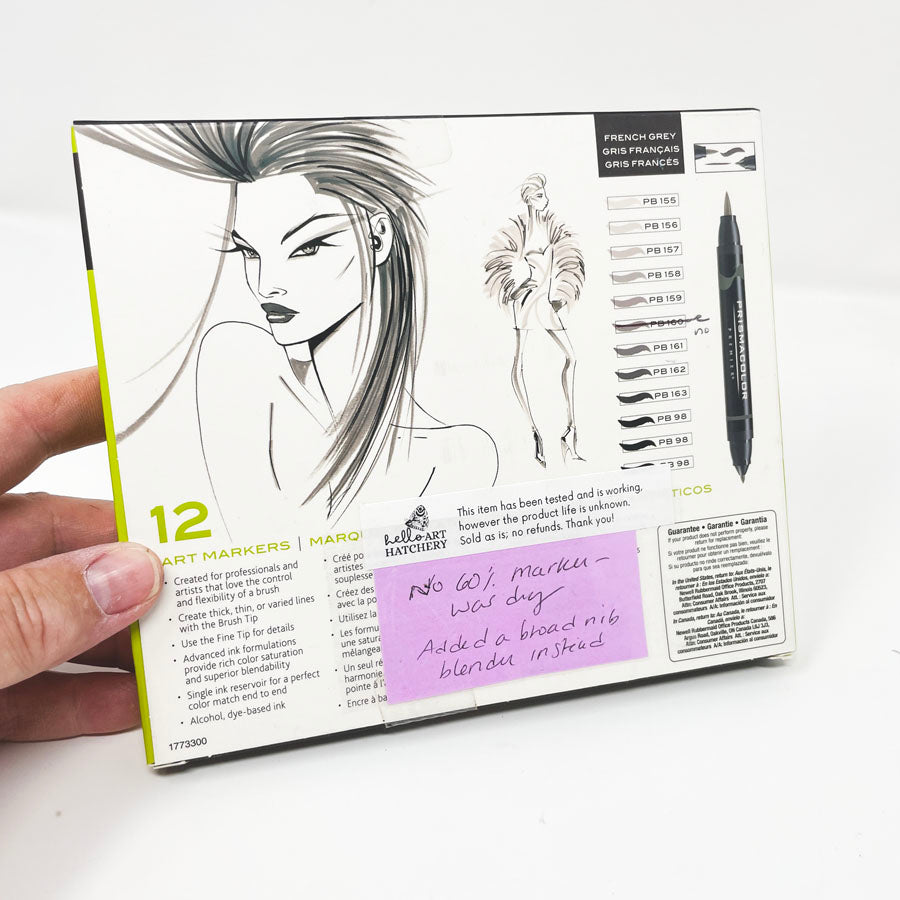 FRENCH GREY
GRIS FRANÇAIS
GRIS FRANCÉS
PB 155
PB 156
PB 157
PB 158
PB 159
PB 160
no
PB 161
PB 162
PB 163
PB 98
PB 98
PB 98
PRISMACOLOR
PREMIER
12
ART MARKERS | MARQU
TICOS
Created for professionals and
artists that love the control
and flexibility of a brush
Create thick, thin, or varied lines
with the Brush Tip
Use the Fine Tip for details
Advanced ink formulations
provide rich color saturation
and superior blendability
Single ink reservoir for a perfect
color match end to end
Alcohol, dye-based ink
1773300
Créé po
artistes
souplesse
Créez des
avec la po
Utilisez la
Les formu
une satura
mélangea
Un seul ré
harmonie
pointe à l'
Encre à ba
hello ART
HATCHERY
This item has been tested and is working,
however the product life is unknown.
Sold as is; no refunds. Thank you!
No 60% marker -
was dry
Added a broad nib
blender instead
Guarantee • Garantie • Garantía
If your product does not perform properly, please
return for replacement:
Si votre produit ne fonctionne pas bien, veuillez le
retourner pour obtenir un remplacement :
Si su producto no rinde correctamente, devuélvalo
para que sea reemplazado:
In the United States, return to: Aux États-Unis, le
retourner à : En los Estados Unidos, envíelo a:
Newell Rubbermaid Office Products, 2707
Butterfield Road, Oak Brook, Illinois, 60523,
Attn: Consumer Affairs Att. : Service aux
consommateurs A/A: Información al consumidor
In Canada, return to: Au Canada, le retourner à : En
Canadá, envíelo a:
Newell Rubbermaid Office Products Canada, 586
Argus Road, Oakville, ON Canada L6J 3J3,
Attn: Consumer Affairs Att. : Service aux
consommateurs A/A: Información al consumidor